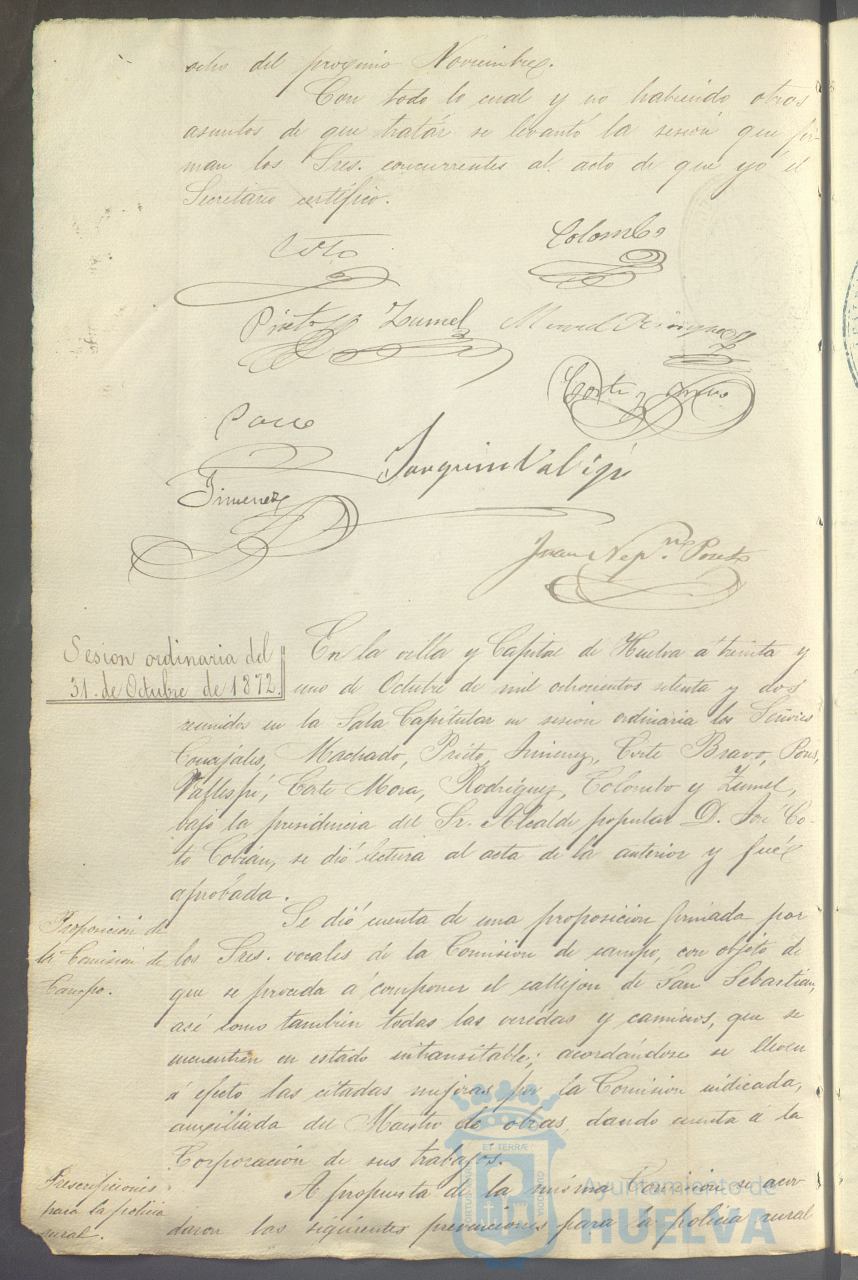 ocho del procsimo Noviembre.
Con todo lo cual y no habiendo otros
asuntos de que tratár se levantó la sesión que fir-
man los Sres. concurrentes al acto de que yo el
Secretario certifico.
Coto
Colombo
Prieto Zumel Manuel Rodriguez
Corte y Bravo
Ponce
Joaquin Vallespi
Jimenez
Juan Nep.no
Sesion ordinaria del
31. de Octubre de 1872.
En la villa y Capital de Huelva á treinta y
uno de Octubre de mil ochocientos setenta y dos
reunidos en la Sala Capitular en sesion ordinaria los Señores
Concejales, Machado, Prieto, Jimenez, Corte Bravo, Pons,
Vallespí, Corte Mora, Rodríguez, Colombo y Zumel,
bajo la presidencia del Sr. Alcalde popular D. José Co-
to Cobián, se dió lectura al acta de la anterior y fué
aprobada.
Proposicion de
la Comision de
Campo.
Se dió cuenta de una proposicion firmada por
los Sres. vocales de la Comision de campo, con objeto de
que se proceda á componer el callejon de San Sebastián,
así como tambien todas las veredas y caminos, que se
encuentren en estado intransitable; acordándose se lleven
á efecto las citadas mejoras por la Comision indicada,
ampliada del Maestro de obras, dando cuenta a la
Corporación de sus trabajos.
Prescripciones
para la policia
rural.
A propuesta de la misma Comision se acor-
daron las siguientes prevenciones para la policia rural
ET TERRÆ
PORTUS
CUSTODIA
Ayuntamiento de
HUELVA